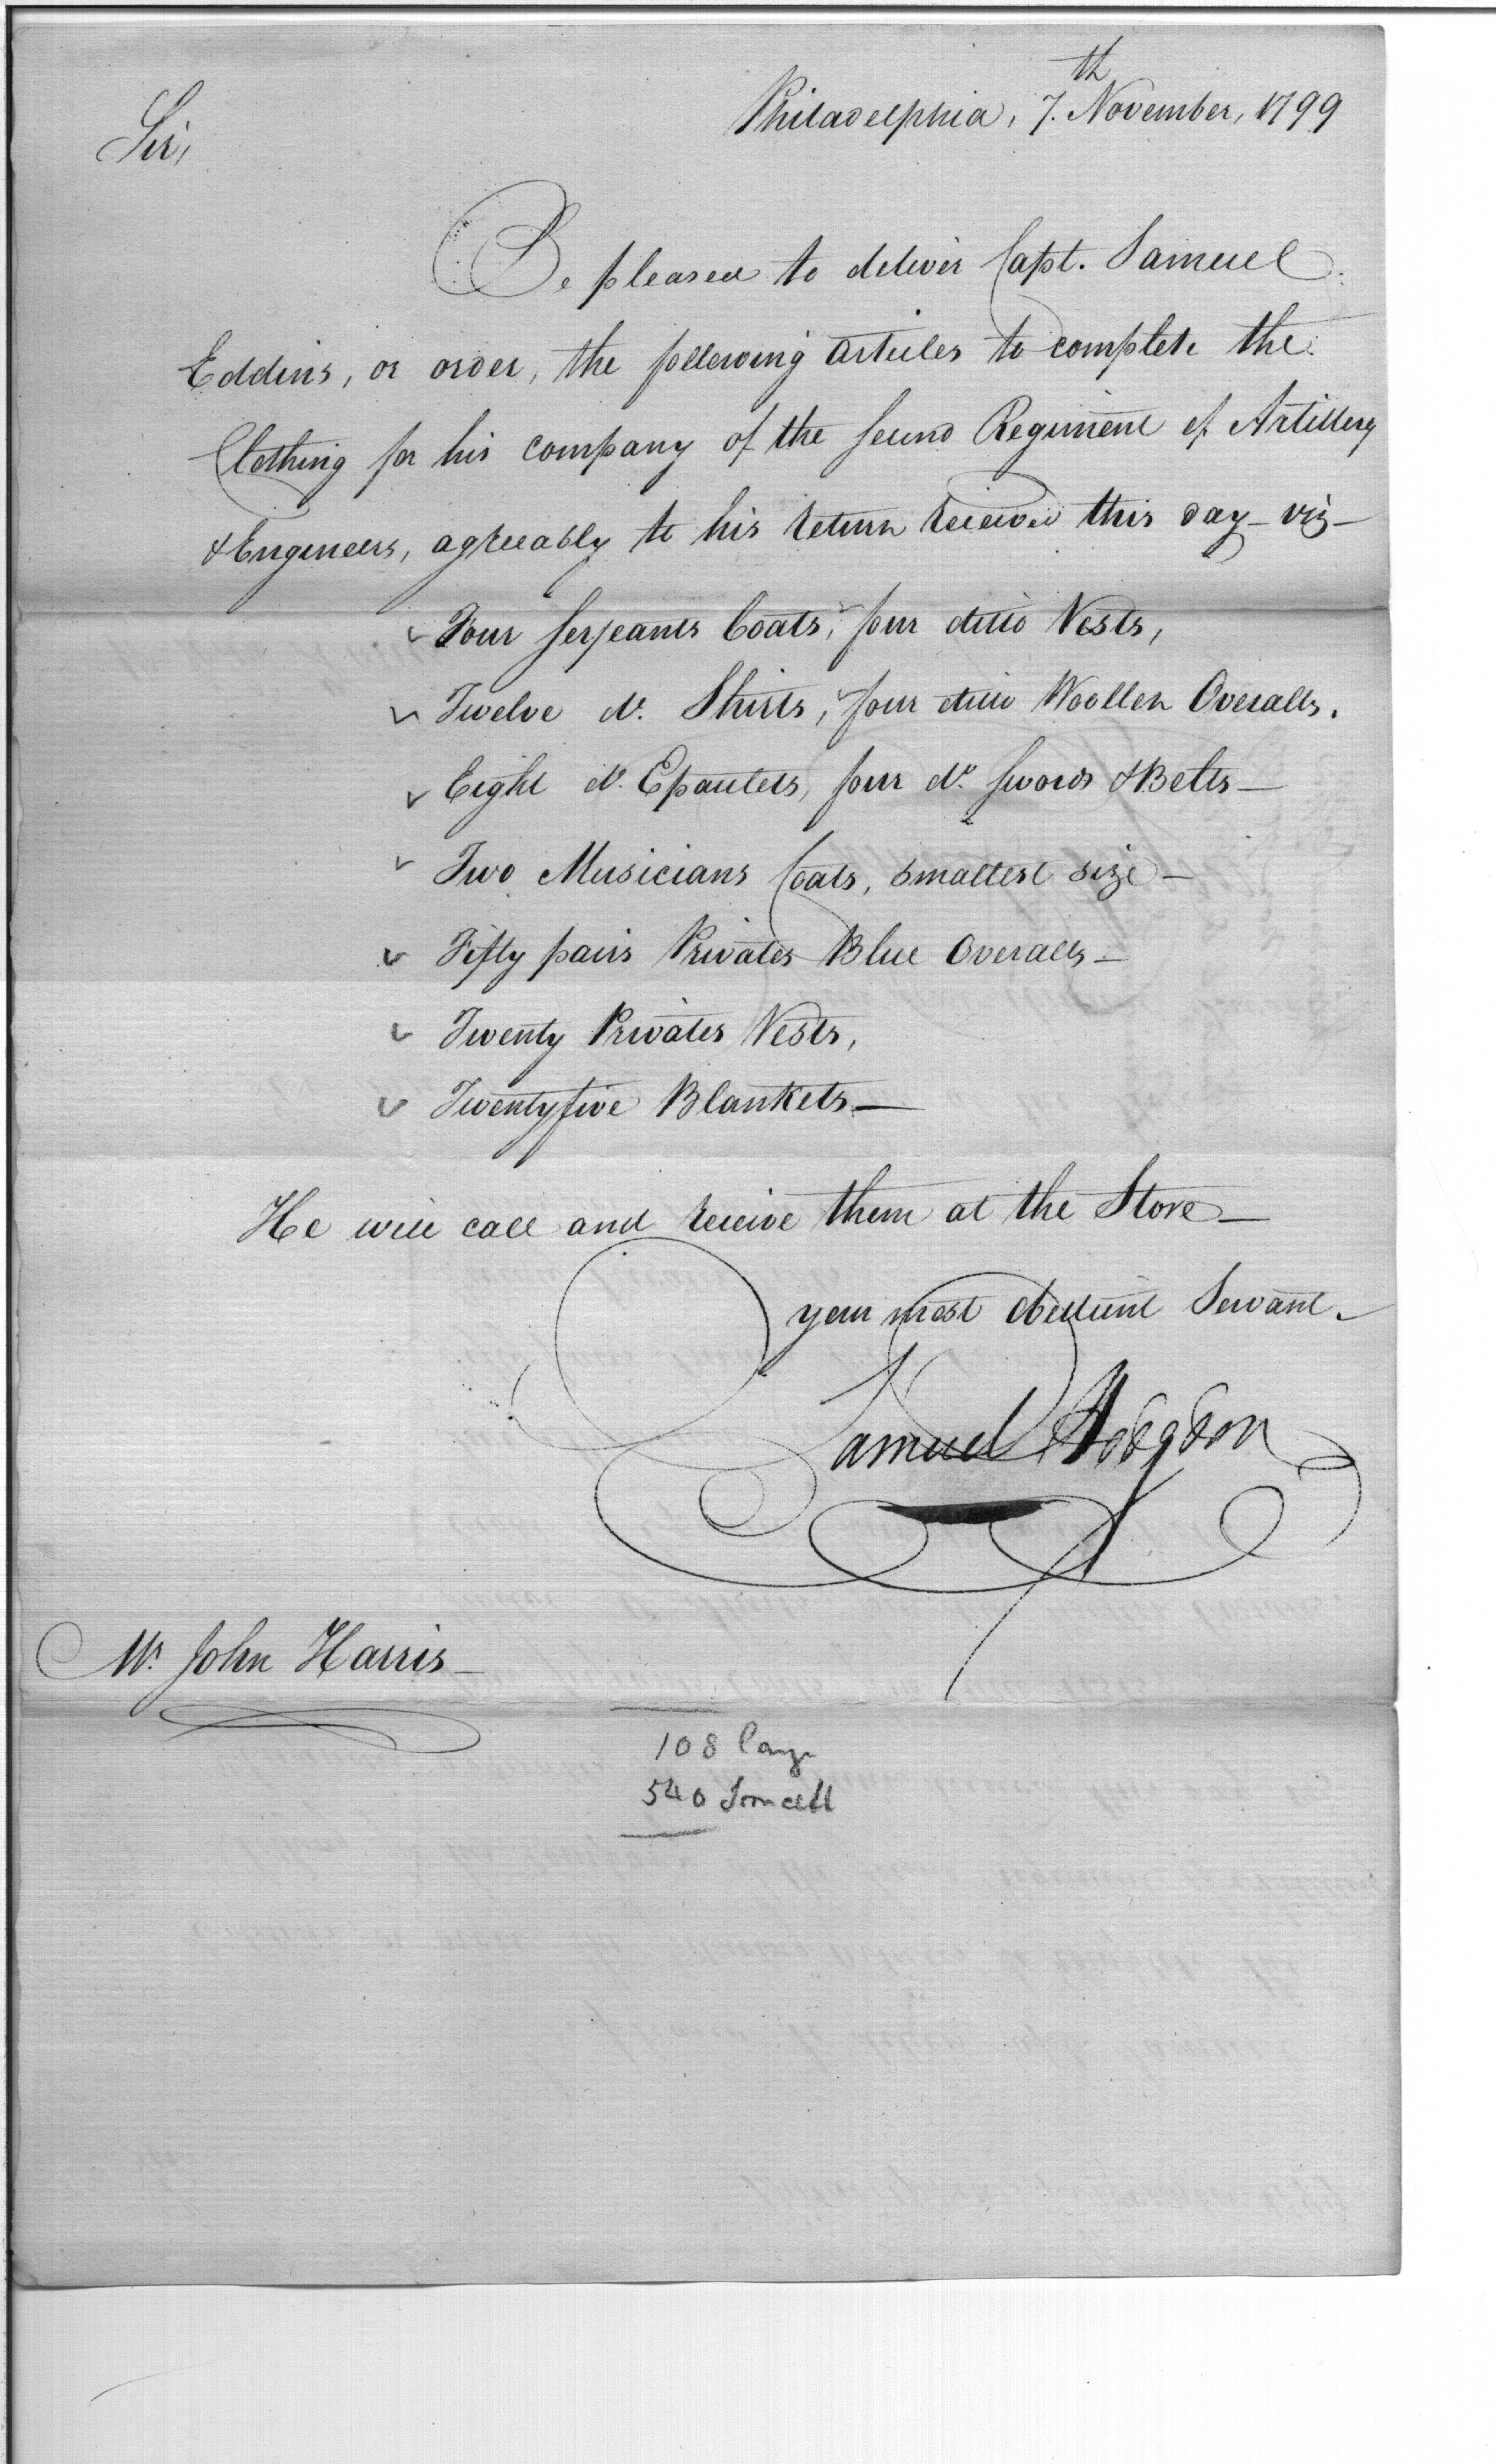 Philadelphia, 7.th November, 1799
Sir,
Be pleased to deliver Capt. Samuel
Eddins, or order, the following articles to complete the
Clothing for his company of the second Regiment of Artillery
& Engineers, agreeably to his return received this day – viz –
Four Serjeants Coats, four ditto Vests,
Twelve do. Shirts, four ditto Woollen Overalls.
Eight do. Epaulets, four do. swords & Belts –
Two Musicians Coats, smallest size –
Fifty pairs Privates Blue Overalls –
Twenty Privates Vests,
Twentyfive Blankets –
He will call and receive them at the Store –
your most obedient Servant.
Samuel Hodgdon
Mr. John Harris –
108 large
540 small